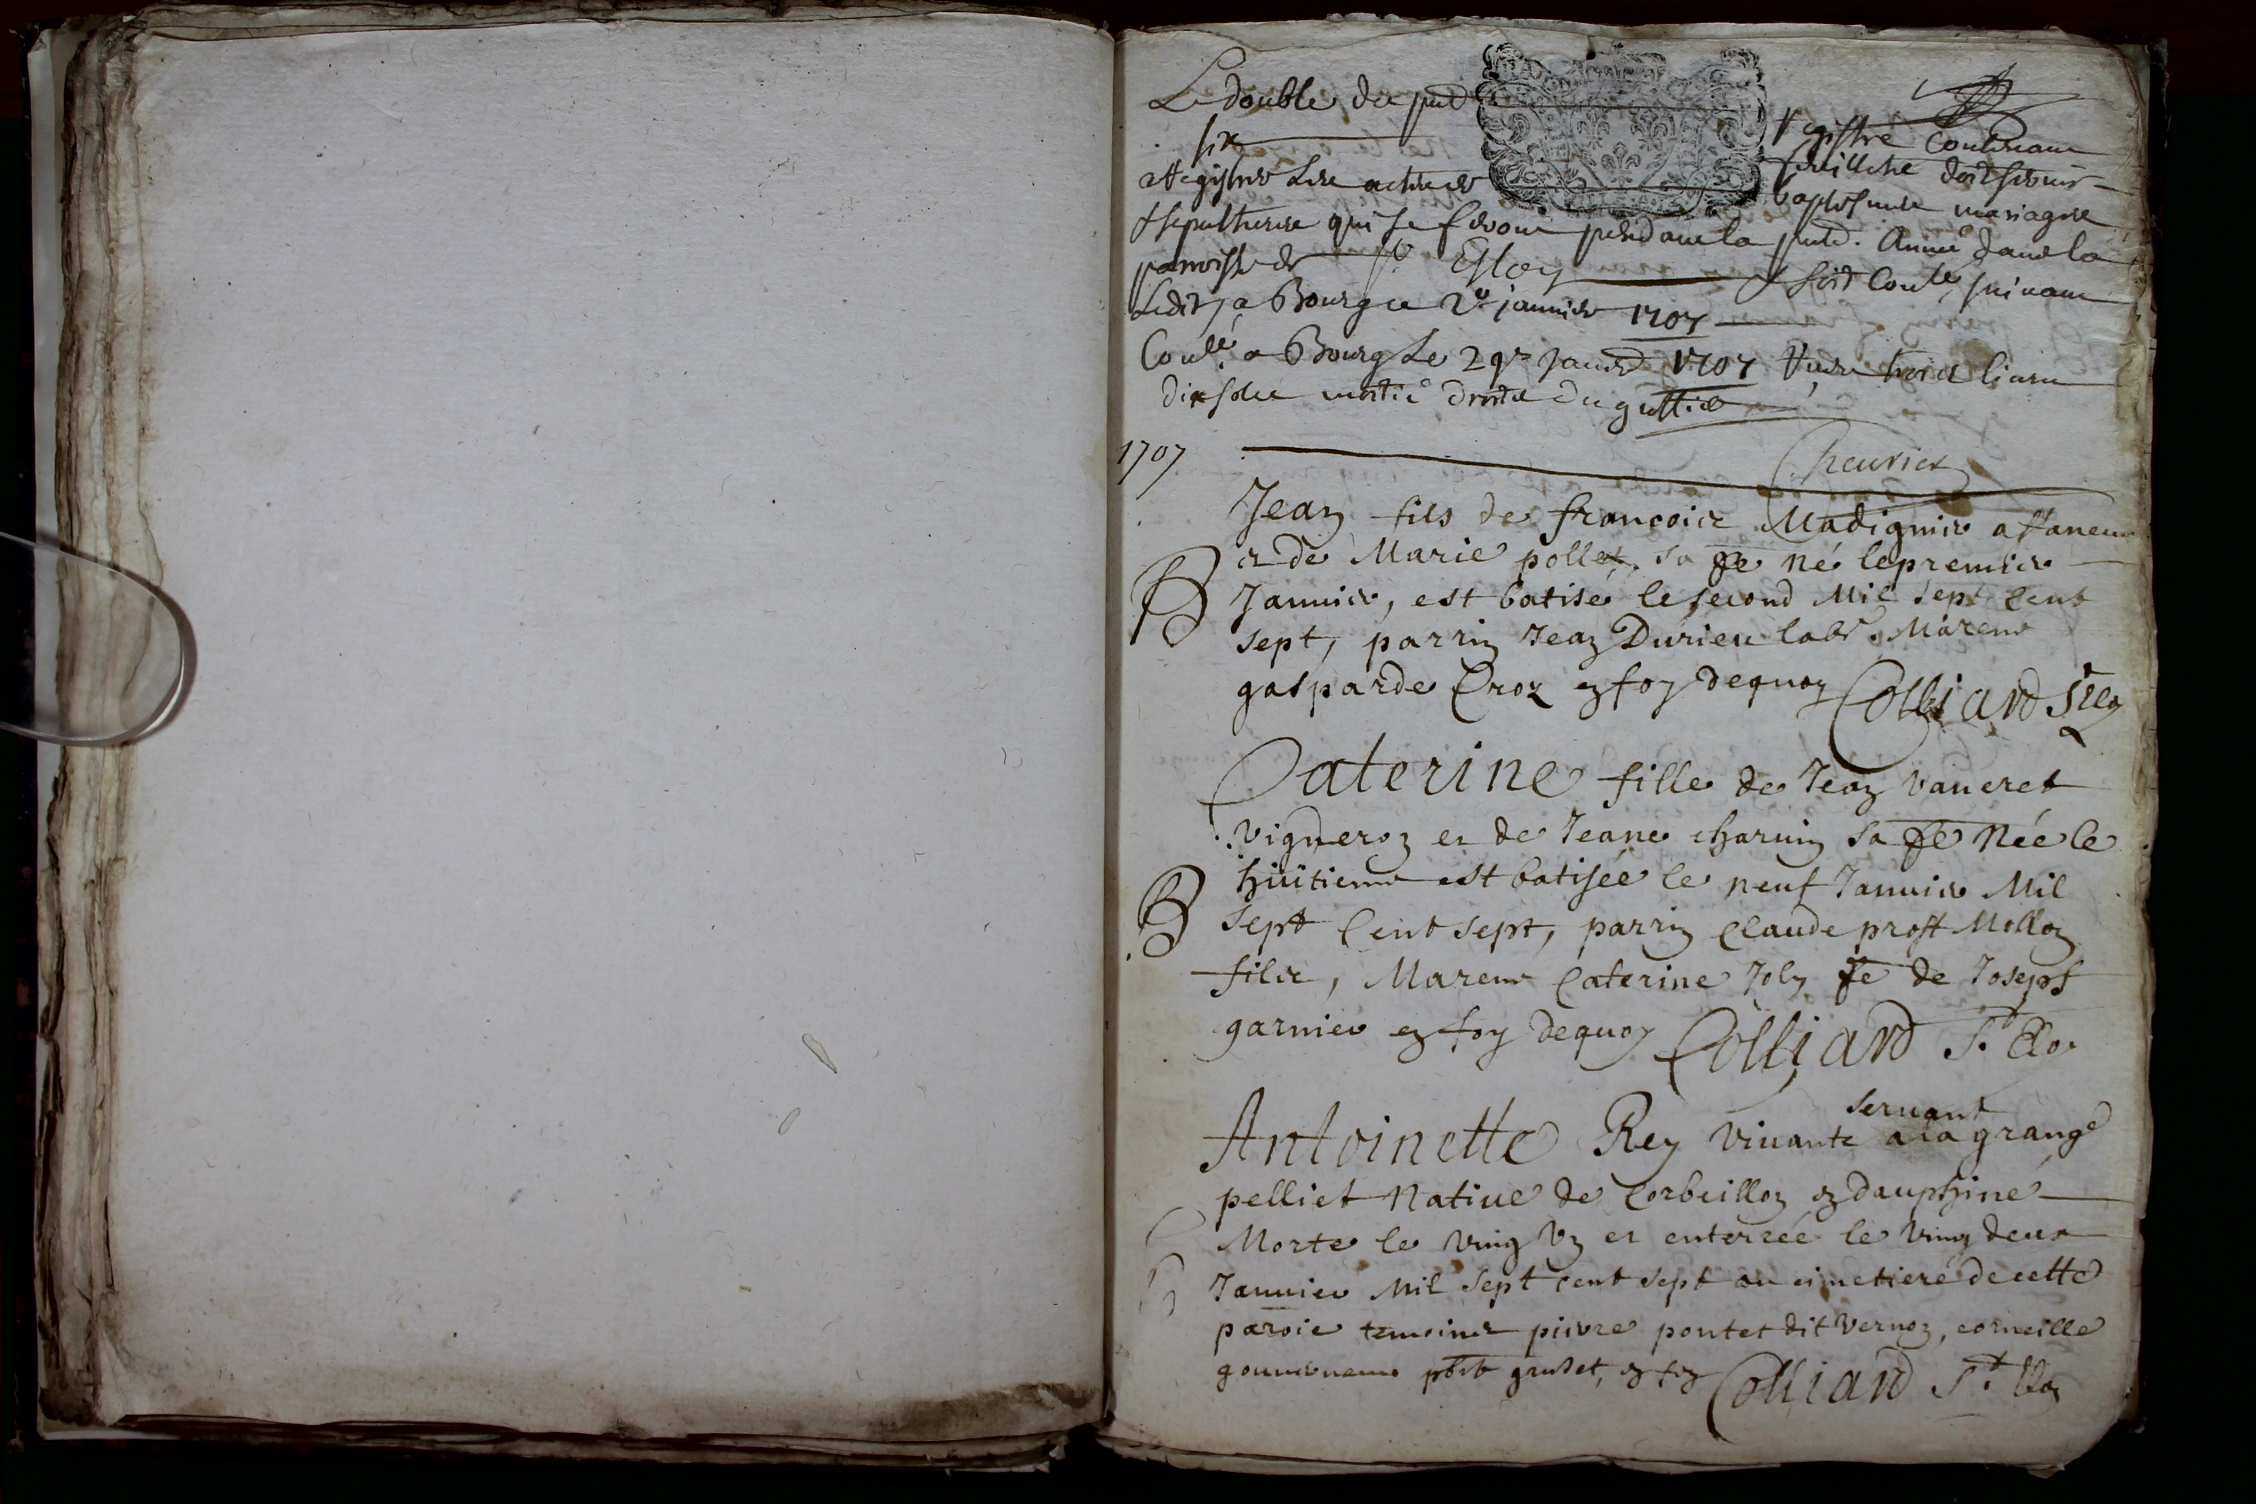 Le double du pnt registre contenant
six feuillets doit servir
a Registrer les actes de baptesmes mariages
& sepultures qui se feront pendant la pnte. Année dans la
parroisse de St Eloy & soit Conlé suivant
Ledit a Bourg ce 2e janvier 1707
Conlé a Bourg Le janvier 1707 trois
dix solz moitié droits du greffier
1707
Jean fils de françois Madignier afaneur
et de Marie pollet sa fe né le premier
Januier, est batisé le second Mil sept Cent
sept, parrin Jean Durieu labr. Marene
gasparde Croz en foy dequoy Colliard St Eloy
B
Caterine fille de Jean vaueret
vigneron et de Jeane charuin sa fe Née le
huitieme est batisée le neuf Januier Mil
B
sept Cent sept, parrin Claude prost Mollon
fils, Marene Caterine Joly fe de Joseph
garnier en foy dequoy Colliard St. Eloy
seruant
Antoinette Rey viuante a la grange
pelliet Natiue de Corbeillon en dauphiné
Morte le ving vn et enterrée le ving deux
Januier Mil sept cent sept au cimetiere de cette
paroie temoins pierre pontet dit vernoz, corneille
en foy Colliard St. Eloy